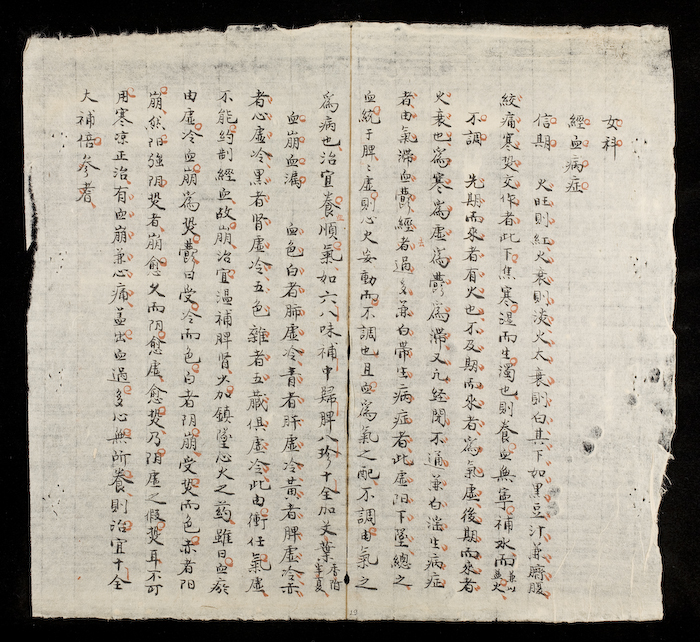 女科
經血病症
信期 火旺則紅火衰則淡火太衰則白其下如黑豆汁兼臍腹
絞痛寒熒交作者此下焦寒湿而生濁也則養血無寧補水而兼以益火
不調 先期而來者有火也不及期而來者爲氣虛後期而來者
火衰也爲寒爲虛爲鬱爲滞又凢经閉不通兼白濁生病症
者由氣滞血鬱經者過多兼白帶生病症者此虛阳下墜總之
血統于脾〻虛則心火妄動而不調也且血爲氣之配不調由氣之
爲病也治宜養順氣如六八味補中歸脾八珍十全加艾葉香附半夏
血崩血漏 血色白者肺虛冷青者肝虛冷黄者脾虛冷赤
者心虛冷黑者肾虛冷五色雜者五臓俱虛冷此由衝任氣虛
不能約制經血故崩治宜温補脾肾少加鎮墜心火之药雖曰血癊
由虛冷血崩爲熒鬱曰受冷而色白者阴崩受熒而色赤者阳
崩然阳强阴熒者崩愈久而阴愈虛愈熒乃阴虛之假熒耳不可
用寒凉正治有血崩兼心痛盖出血過多心無所養則治宜十全
大補倍参耆